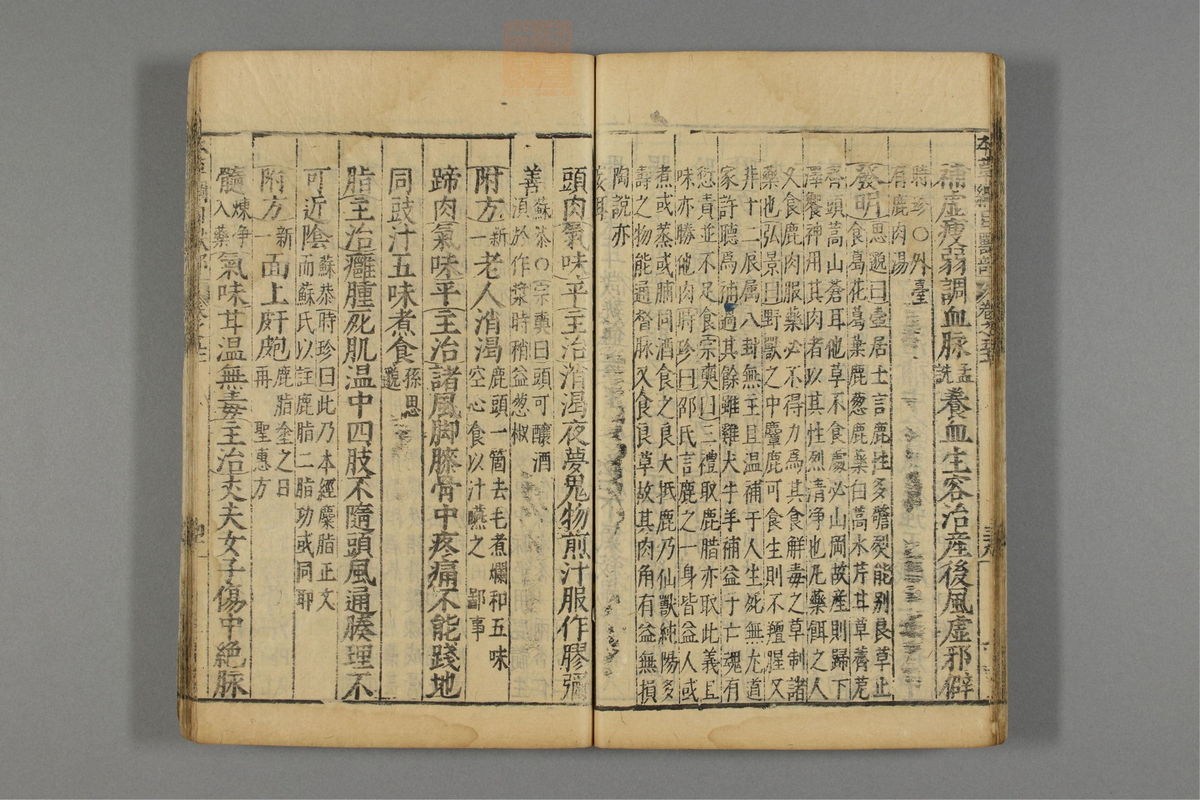 補虛瘦弱調血脉孟詵養血生容治產後風虛邪僻
時珍○外臺
有鹿肉湯
發明思邈曰壺居士言鹿性多警烈能別良草止
食葛花葛葉鹿葱鹿藥白蒿水芹甘草薺苨
齊頭蒿山蒼耳他草不食處必山岡故產則歸下
澤饗神用其肉者以其性烈清淨也凡藥餌之人
久食鹿肉服藥必不得力為其食解毒之草制諸
藥也弘景曰野獸之中麞鹿可食生則不羶腥又
非十二辰屬八卦無主且溫補于人生死無尤道
家許聽為脯過其餘雖雞犬牛羊補益于亡魂有
愆責並不足食宗奭曰三禮取鹿腊亦取此義且
味亦勝他肉時珍曰邵氏言鹿之一身皆益人或
煮或蒸或脯同酒食之良大抵鹿乃仙獸純陽多
壽之物能通督脉又食良草故其肉角有益無損
陶說亦
妄耳
頭肉氣味平主治消渴夜夢鬼物煎汁服作膠彌
善蘇恭○宗奭曰頭可釀酒
須於作漿時稍益葱椒
附方新一老人消渴鹿頭一箇去毛煮爛和五味
空心食以汁嚥之鄙事
蹄肉氣味平主治諸風脚膝骨中疼痛不能踐地
同豉汁五味煮食孫思邈
脂主治癰腫死肌溫中四肢不隨頭風通腠理不
可近陰蘇恭時珍曰此乃本經麋脂正文
而蘇氏以註鹿脂二脂功或同耶
附方新一面上䵟皰鹿脂塗之日
再聖惠方
髓煉淨入藥氣味甘溫無毒主治丈夫女子傷中絕脉